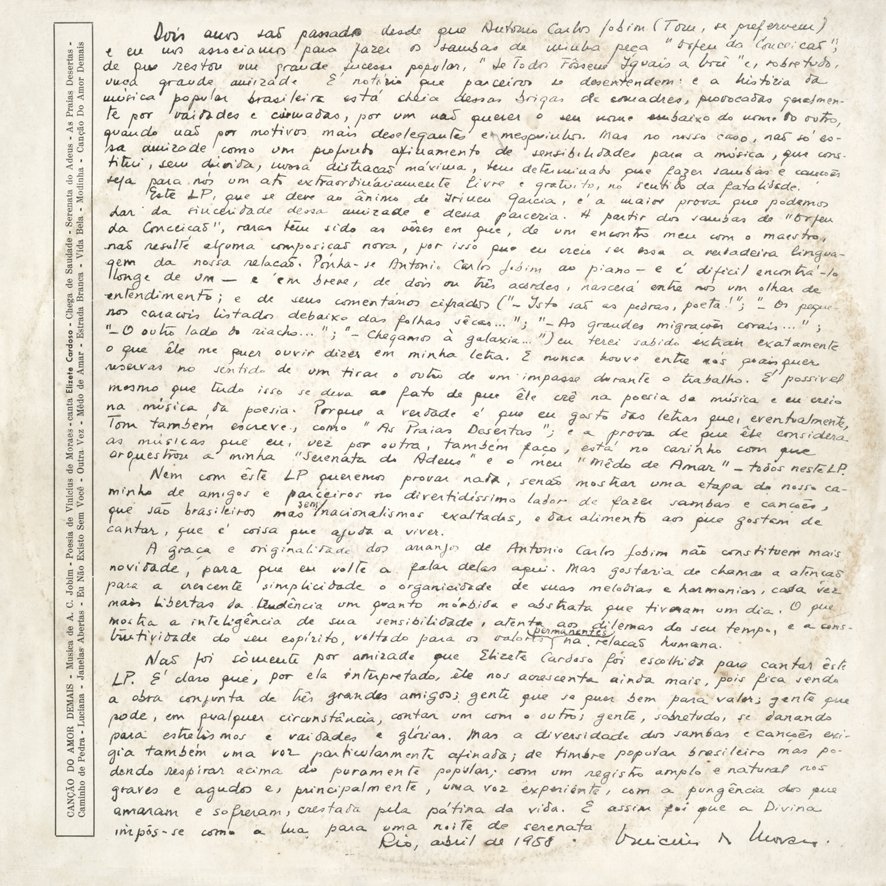 CANÇÃO DO AMOR DEMAIS - Musica de A. C. Jobim - Poesia de Vinicius de Moraes - canta Elizete Cardoso - Chega de Saudade - Serenata do Adeus - As Praias Desertas -
Caminho de Pedra - Luciana - Janelas Abertas - Eu Não Existo Sem Você - Outra Vez - Mêdo de Amar - Estrada Branca - Vida Bela - Modinha - Canção Do Amor Demais
Dois anos são passados desde que Antonio Carlos Jobim (Tom, se preferirem)
e eu nos associamos para fazer os sambas de minha peça "Orfeu da Conceição",
de que restou um grande sucesso popular, "Se Todos Fôssem Iguais a Você" e, sobretudo,
uma grande amizade. É notório que parceiros se desentendem: e a história da
música popular brasileira está cheia dessas brigas de comadres, provocadas geralmen-
te por vaidades e ciumadas, por um não querer o seu nome embaixo do nome do outro,
quando não por motivos mais deselegantes e mesquinhos. Mas no nosso caso, não só es-
sa amizade como um profundo afinamento de sensibilidades para a música, que cons-
titui, sem dúvida, nossa distração máxima, tem determinado que fazer sambas e canções
seja para nós um ato extraordinariamente livre e gratuito, no sentido da fatalidade.
Este LP, que se deve ao ânimo de Irineu Garcia, é a maior prova que podemos
dar da sinceridade dessa amizade e dessa parceria. A partir dos sambas de "Orfeu
da Conceição", raras têm sido as vêzes em que, de um encontro meu com o maestro,
não resulte alguma composição nova, por isso que eu creio ser essa a verdadeira lingua-
gem da nossa relação. Ponha-se Antonio Carlos Jobim ao piano - e é difícil encontrá-lo
longe de um - e em breve, de dois ou três acordes, nascerá entre nós um olhar de
entendimento; e de seus comentários cifrados ("- Isto são as pedras, poeta!"; "- Os peque-
nos caracois listados debaixo das folhas sêcas..."; "- As grandes migrações corais...";
"- O outro lado do riacho..."; "- Chegamos à galaxia...") eu terei sabido extrair exatamente
o que êle me quer ouvir dizer em minha letra. E nunca houve entre nós quaisquer
reservas no sentido de um tirar o outro de um impasse durante o trabalho. É possível
mesmo que tudo isso se deva ao fato de que êle crê na poesia da música e eu creio
na música da poesia. Porque a verdade é que eu gosto das letras que, eventualmente,
Tom também escreve, como "As Praias Desertas"; e a prova de que êle considera
as músicas que eu, vez por outra, também faço, está no carinho com que
orquestrou a minha "Serenata do Adeus" e o meu "Mêdo de Amar" - todos neste LP.
Nem com êste LP queremos provar nada, senão mostrar uma etapa do nosso ca-
minho de amigos e parceiros no divertidíssimo labor de fazer sambas e canções,
que são brasileiros mas sem nacionalismos exaltados, e dar alimento aos que gostam de
cantar, que é coisa que ajuda a viver.
A graça e originalidade dos arranjos de Antonio Carlos Jobim não constituem mais
novidade, para que eu volte a falar delas aqui. Mas gostaria de chamar a atenção
para a crescente simplicidade e organicidade de suas melodias e harmonias, cada vez
mais libertas da tendência um quanto mórbida e abstrata que tiveram um dia. O que
mostra a inteligência de sua sensibilidade, atenta aos dilemas do seu tempo, e a cons-
trutividade do seu espírito, voltado para os valores permanentes na relação humana.
Não foi sòmente por amizade que Elizete Cardoso foi escolhida para cantar êste
LP. É claro que, por ela interpretado, êle nos acrescenta ainda mais, pois fica sendo
a obra conjunta de três grandes amigos; gente que se quer bem para valer; gente que
pode, em qualquer circunstância, contar um com o outro; gente, sobretudo, se danando
para estrelismos e vaidades e glórias. Mas a diversidade dos sambas e canções exi-
gia também uma voz particularmente afinada; de timbre popular brasileiro mas po-
dendo respirar acima do puramente popular; com um registro amplo e natural nos
graves e agudos e, principalmente, uma voz experiente, com a pungência dos que
amaram e sofreram, crestada pela pátina da vida. E assim foi que a Divina
impôs-se como a lua para uma noite de serenata
Rio, abril de 1958. Vinicius de Moraes.